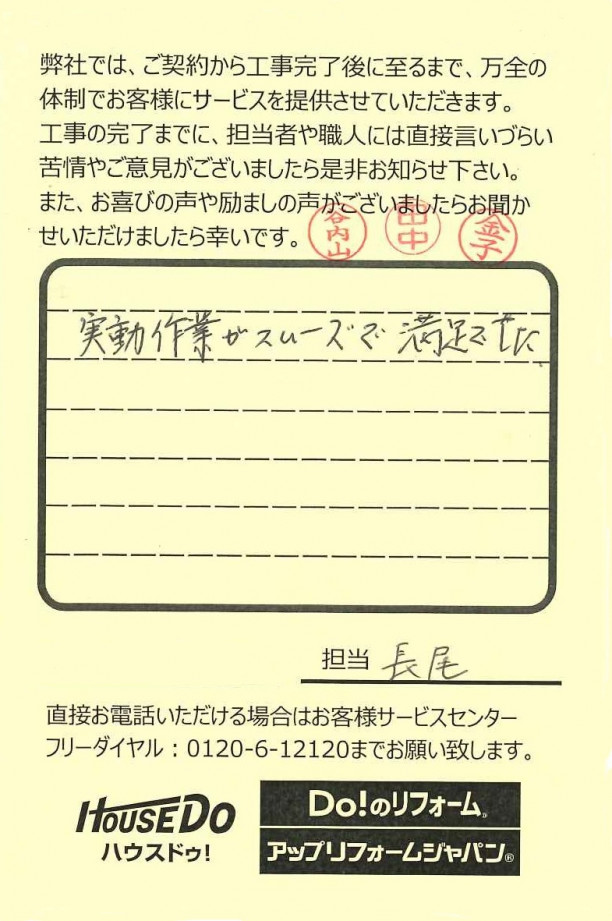 弊社では、ご契約から工事完了後に至るまで、万全の
体制でお客様にサービスを提供させていただきます。
工事の完了までに、担当者や職人には直接言いづらい
苦情やご意見がございましたら是非お知らせ下さい。
また、お喜びの声や励ましの声がございましたらお聞か
せいただけましたら幸いです。
谷内山
田中
金子
実動作業がスムーズで満足でした
担当 長尾
直接お電話いただける場合はお客様サービスセンター
フリーダイヤル：0120-6-12120までお願い致します。
HOUSEDO
ハウスドゥ!
Do!のリフォーム®
アップリフォームジャパン®